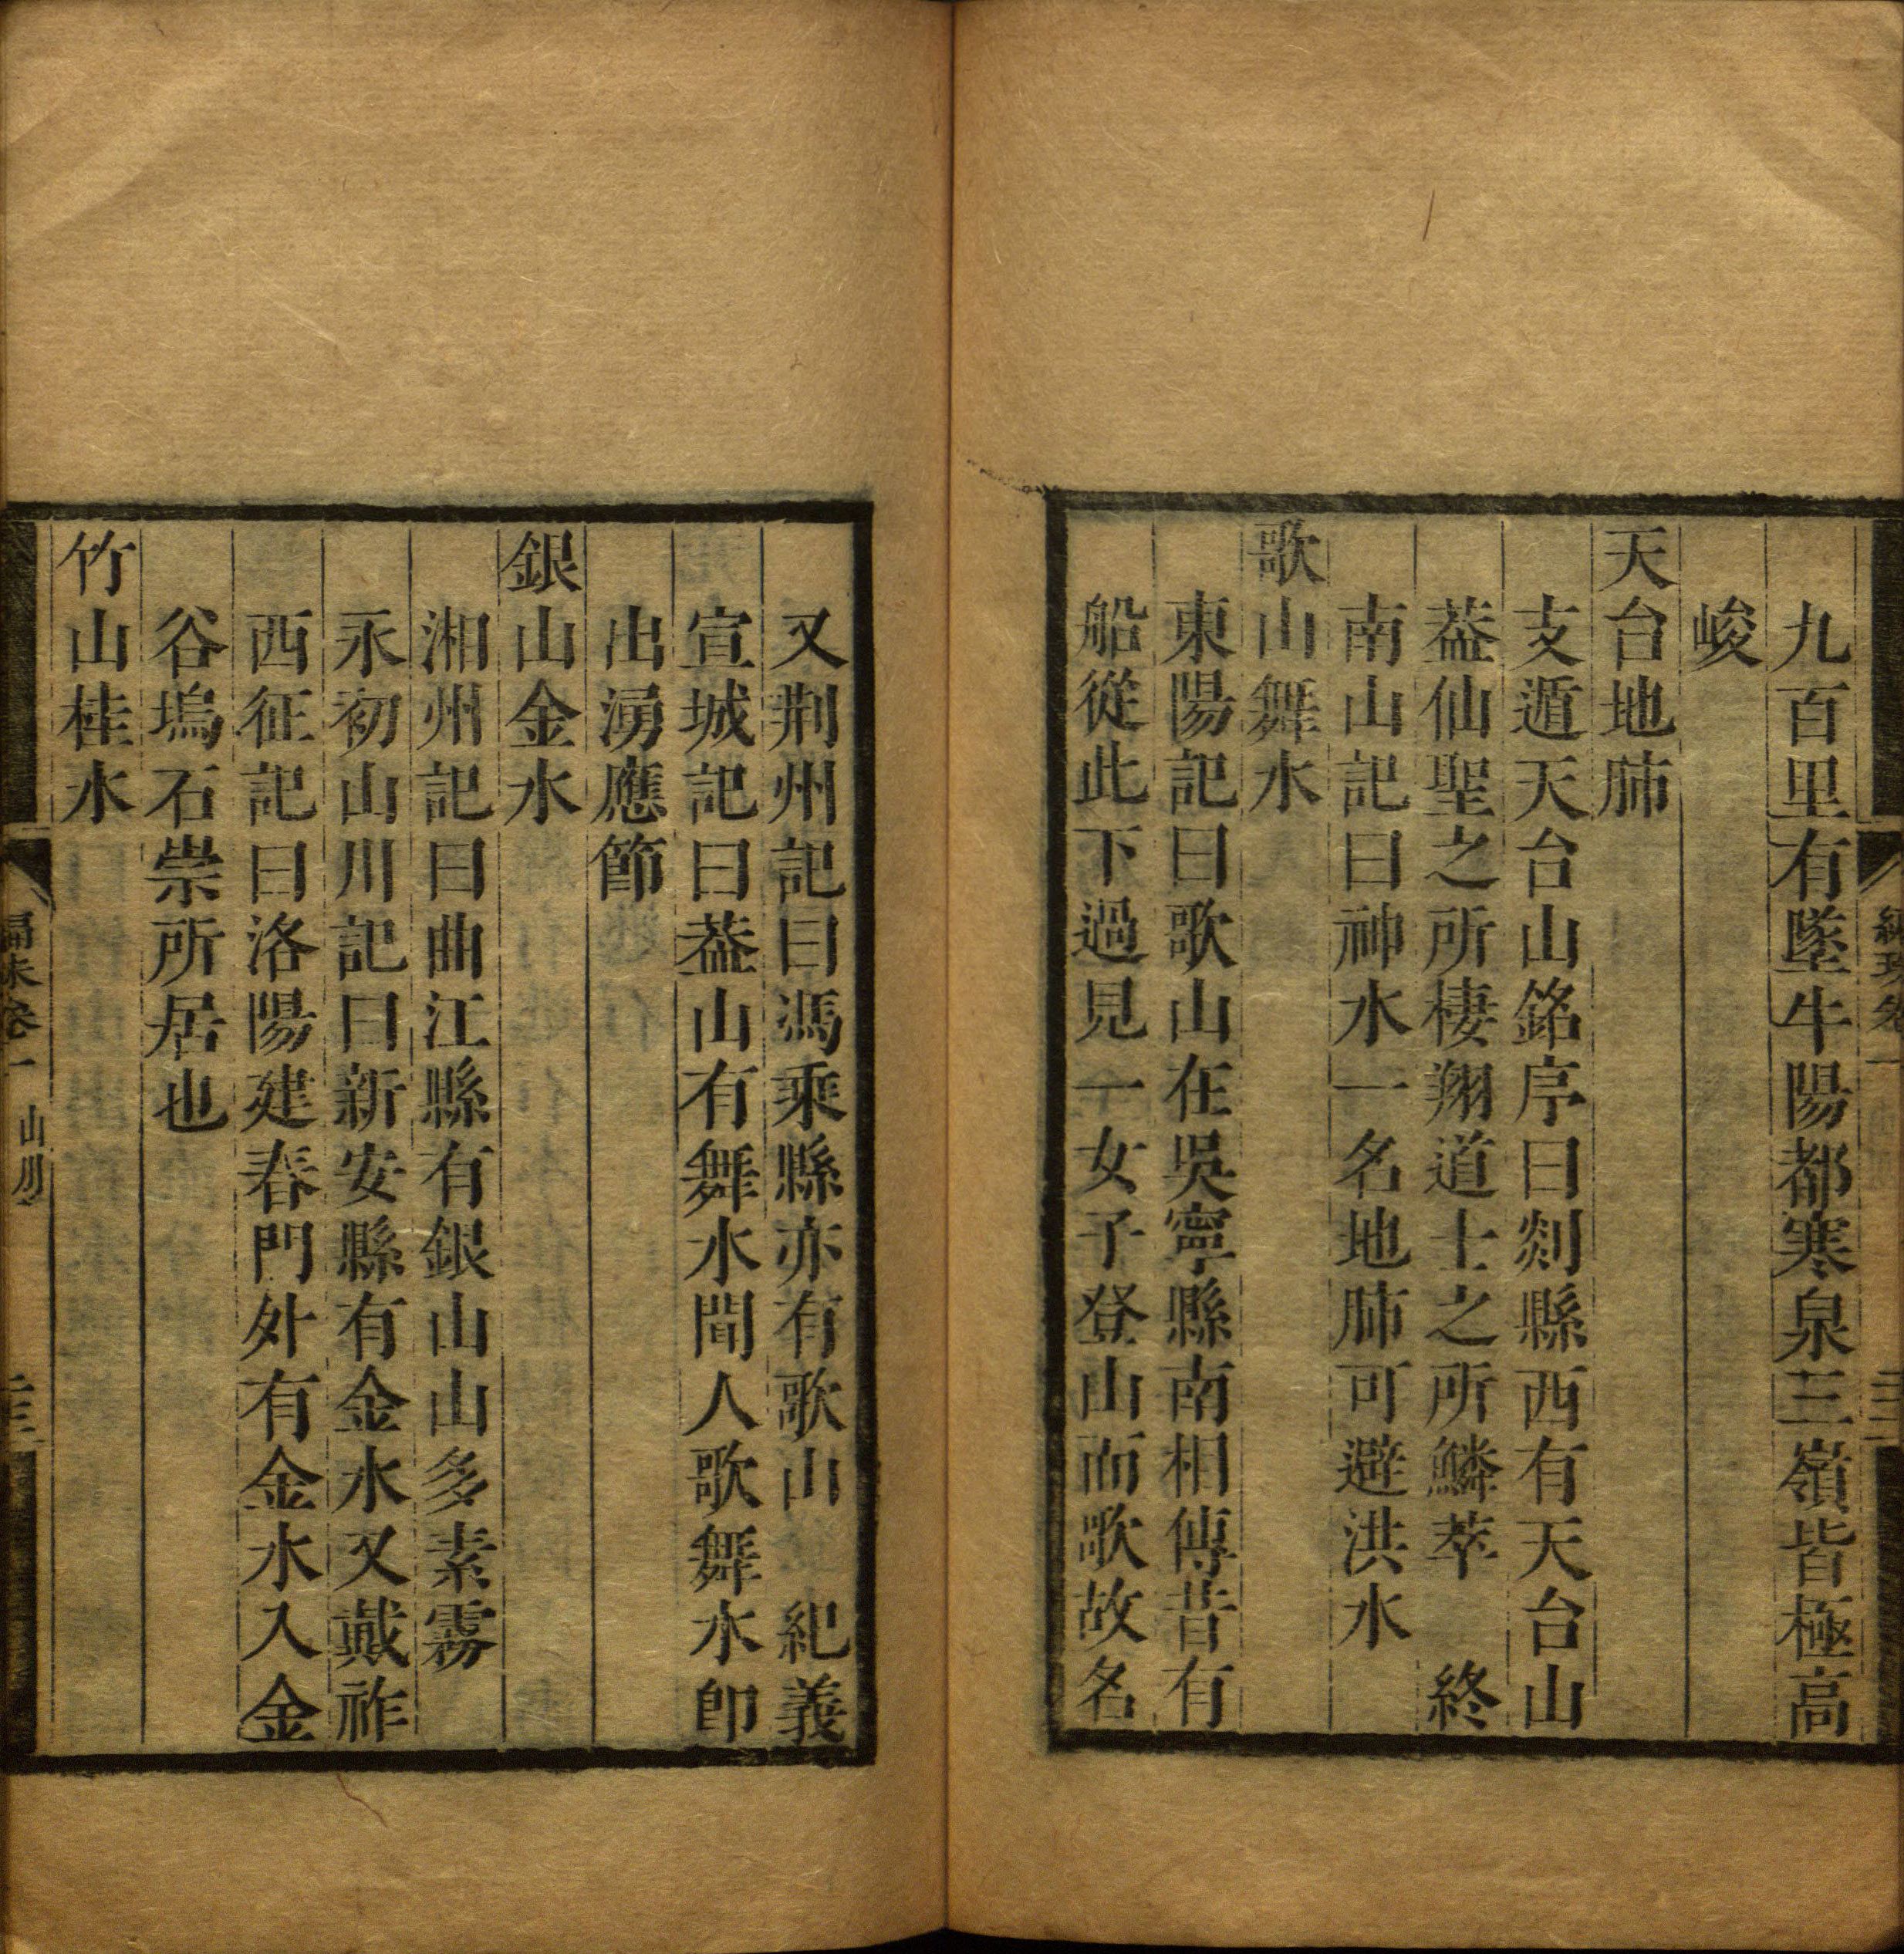 九百里有墜牛陽都寒泉三嶺皆極高
峻
天台地肺
支遁天台山銘序曰剡縣西有天台山
葢仙聖之所棲翔道士之所鱗萃　終
南山記曰神水一名地肺可避洪水
歌山舞水
東陽記曰歌山在吳寧縣南相傳昔有
船從此下過見一女子登山而歌故名
又荆州記曰馮乘縣亦有歌山　紀義
宣城記曰葢山有舞水間人歌舞水卽
出湧應節
銀山金水
湘州記曰曲江縣有銀山山多素霧
永初山川記曰新安縣有金水又戴祚
西征記曰洛陽建春門外有金水入金
谷塢石崇所居也
竹山桂水
山川